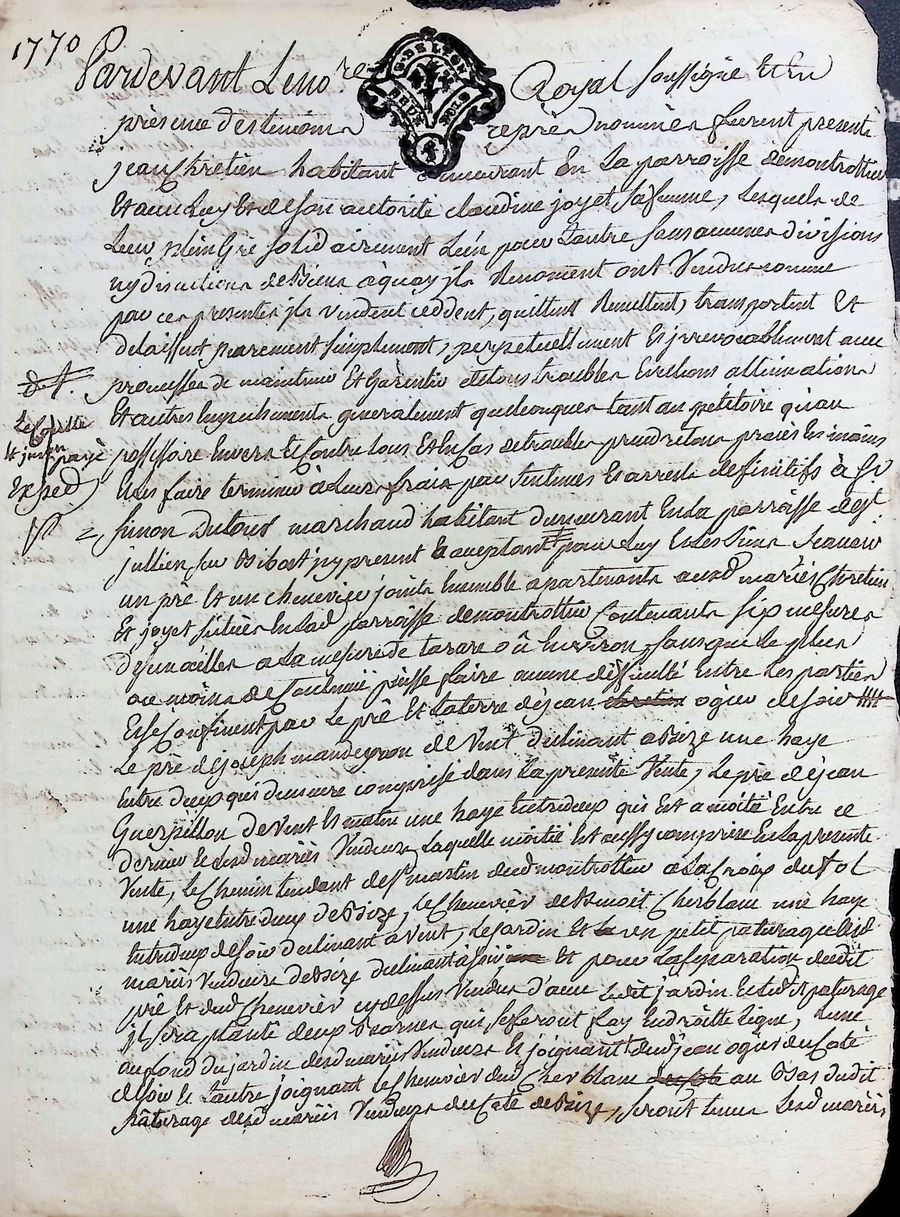 1770
Pardevant Le no.re Royal soussigné et en
G. DE LYON
DEUX SOLS
presence des temoins cy après nommés furent present
jean Chretien habitant demeurant En La parroisse de montrottier
Et avec Luy Et de son autorité claudine joyet sa femme, Lesquels de
Leur plein Gré solidairement L'un pour L'autre sans aucunes divisions
ny discutions de Biens à quoy ils Renoncent ont Vendus comme
par ces presentes ils vendent ceddent, quittent Remettent, transportent Et
delaissent purement simplement, perpetuellement Et irrevocablement avec
promesses de maintenir Et Garentir de tous troubles Evictions allienations
Et autres Empechements generalement quelconques tant au pétitoire qu'au
possessoire Envers Et Contre tous Et En Cas de troubles prendre tous procès En mains
Les faire terminer à Leurs frais par sentences Et arrests definitifs à Sr
Simon Dutout marchand habitant demeurant En La parroisse de St
jullien sur Bibost icy present Et acceptant pour Luy Et Les Siens Scavoir
un pré Et un chenevier joints Ensemble apartenants auxd mariés Chretien
Et joyet situés En Lad parroisse de montrottier Contenants six mesures
de semailles a La mesure de tarare où Environ, sans que Le plus
ou moins de Contenue puisse faire aucune difficulté Entre Les parties
Et se Confinent par Le pré Et La terre de jean ogier de soir
Le pré de joseph mandegron de Vent declinant a Bize une haye
Entre deux qui demeure comprise dans La presente Vente, Le pré de jean
Guerpillon de vent Et matin une haye Entredeux qui Est a moitié Entre ce
dernier Et Lesd mariés Vendeurs Laquelle moitié Est aussy comprise En La presente
Vente, Le Chemin tendant de St martin aud montrottier a La Croix du Sol
une haye Entredeux de Bize, Le Chenevier de Benoit Cherblanc une haye
Entredeux de soir declinant a vent, Le jardin Et un petit paturage desd
mariés Vendeurs de Bize declinant a soir Et pour La separation dudit
pré Et dud Chenevier cy dessus Vendus d'avec Ledit jardin Et Ledit paturage
il sera planté deux Bornes qui se feront foy En droitte Ligne, L'une
au fond du jardin desd mariés Vendeurs Et joignant dud jean ogier du Coté
de soir Et L'autre joignant Le Chenevier dud Cherblanc au Bas dudit
Pâturage desd mariés Vendeurs du Coté de Bize, seront tenus Lesd mariés
Exped